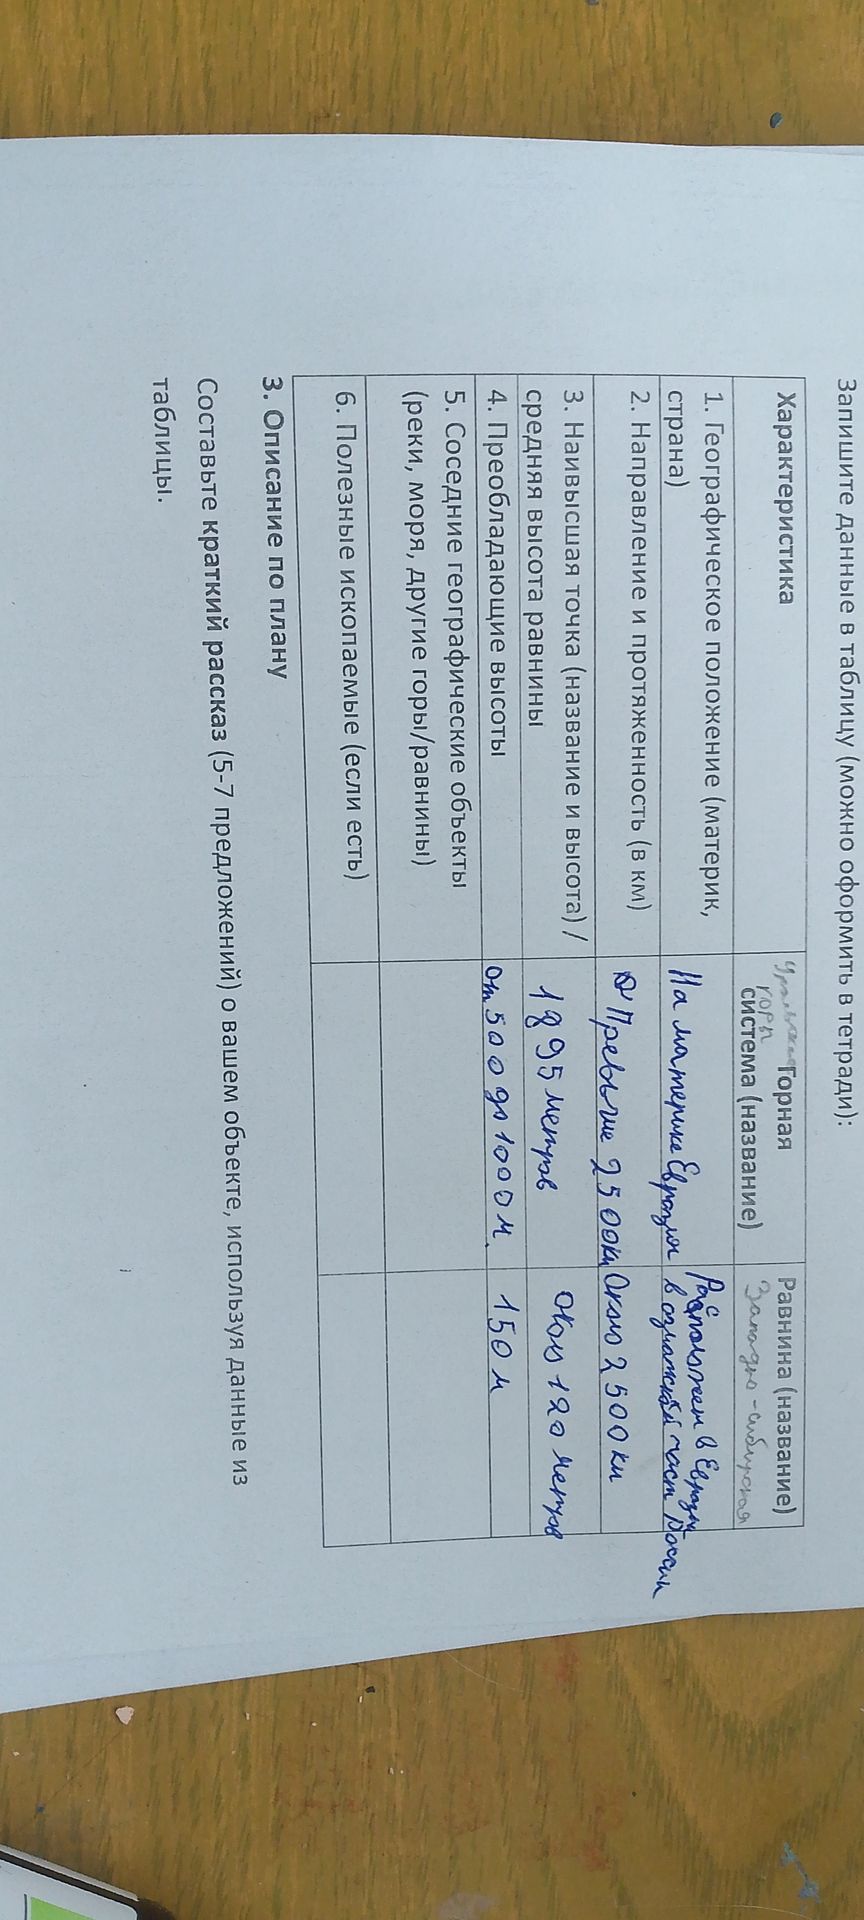 Запишите данные в таблицу (можно оформить в тетради):
Характеристика
Уральские Горная
горы
система (название)
Равнина (название)
Западно-сибирская
1. Географическое положение (материк,
страна)
На материке Евразия
Расположен в Евразии
в азиатской част России
2. Направление и протяженность (в км)
Превыше 2500км
Около 2500 км
3. Наивысшая точка (название и высота) /
средняя высота равнины
1895 метров
около 120 метров
4. Преобладающие высоты
от 500 до 1000 м.
150 м
5. Соседние географические объекты
(реки, моря, другие горы/равнины)
6. Полезные ископаемые (если есть)
3. Описание по плану
Составьте краткий рассказ (5-7 предложений) о вашем объекте, используя данные из
таблицы.